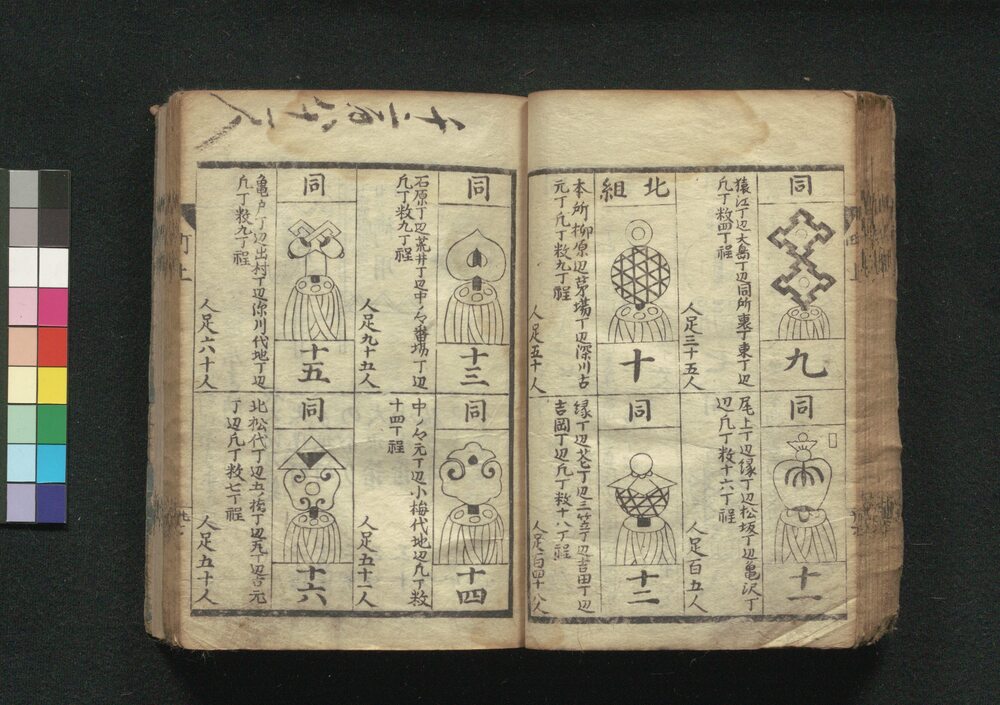 同
九
猿江丁辺大島丁辺同所裏丁東丁辺
凡丁数四丁程
人足三十五人
同
十一
尾上丁辺縁丁辺松坂丁辺亀沢丁
辺凡丁数十六丁程
人足百五人
北組
十
本所柳原辺茅場丁辺深川古
元丁凡丁数九丁程
人足五十人
同
十二
縁丁辺花丁辺三笠丁辺吉田丁辺
吉岡丁辺凡丁数十八丁程
人足百四十八人
同
十三
石原丁辺荒井丁辺中ノ郷番場丁辺
凡丁数九丁程
人足九十五人
同
十四
中ノ郷元丁辺小梅代地辺凡丁数
十四丁程
人足五十一人
同
十五
亀戸丁辺出村丁辺深川代地丁辺
凡丁数九丁程
人足六十人
同
十六
北松代丁辺五ノ橋丁辺九丁辺吉元
丁辺凡丁数七丁程
人足五十人